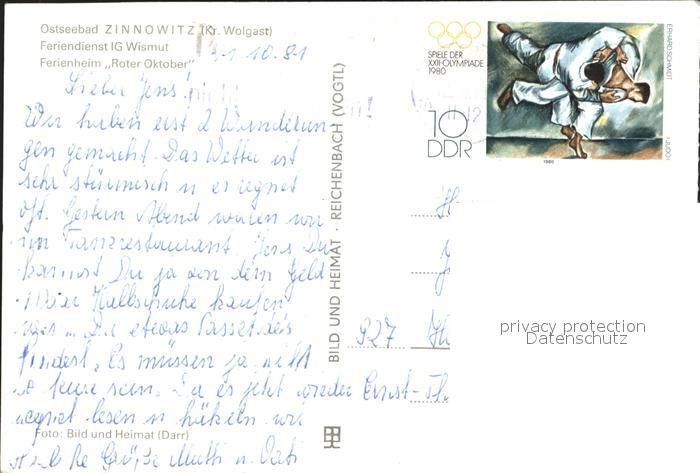 Ostseebad ZINNOWITZ (Kr. Wolgast)
Feriendienst IG Wismut
Ferienheim „Roter Oktober"
10.81
Lieber Jens!
Wir haben erst 2 Wanderun-
gen gemacht. Das Wetter ist
sehr stürmisch u es regnet
oft. Gestern Abend waren wir
im Tanzrestaurant. Jens Du
kannst Du ja von dem Geld
kaufen
Du etwas
findest. Es müssen ja nicht
sein. Da es jetzt wieder
regnet lesen u häkeln wir
Grüße Mutti u. Vati
Foto: Bild und Heimat (Darr)
BILD UND HEIMAT · REICHENBACH (VOGTL)
SPIELE DER
XXII.OLYMPIADE
1980
10
DDR
ERHARD SCHMIDT
1980
927
Ernst-
privacy protection
Datenschutz